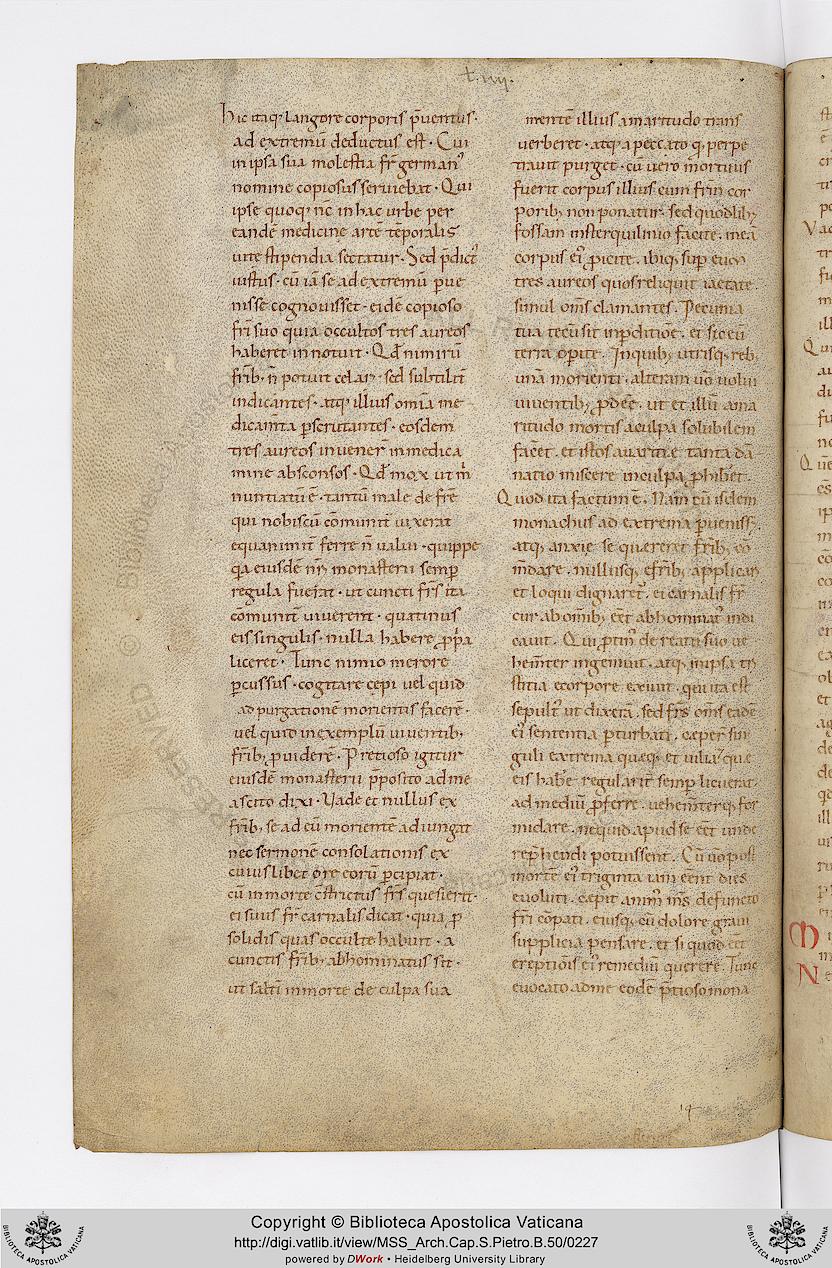 t. iiij.
Hic itaq; langore corporis p̄ventus ·
ad extremū deductus est · Cui
in ipsa sua molestia fr̄ german᾽
nomine copiosus serviebat · Qui
ipse quoq; nc̄ in hac urbe per
eandē medicine artē tēporalis
vite stipendia sectatur · Sed p̄dict᾽
iustus · cū iā se ad extremū p̱ue
nisse cognovisset · eidē copioso
fr̄i suo quia occultos tres aureos
haberet innotuit · Qd̄ nimirū
fr̄ib; n̄ potuit celari · sed subtilit̄
indicantes · atq; illius omīa me
dicam̄ta p̱scrutantes · eosdem
tres aureos invener̄ inmedica
mine absconsos · Qd̄ mox ut m̄
nuntiatū ē · tantū male de fr̄e
qui nobiscū cōmunit̄ vixerat
equanimit̄ ferre n̄ valui · quippe
q̄a eiusdē nr̄i monasterii semp̱
regula fuerat · ut cuncti fr̄s ita
cōmunit̄ viverent · quatinus
eis singulis · nulla habere p̱p̄a
liceret · Tunc nimio merore
p̱cussus · cogitare cepi vel quid
ad purgationē morientis facerē ·
vel quid in exemplū viventib;
fr̄ib; p̱viderē · Pretioso igitur
eiusdē monasterii p̄posito ad me
ascito dixi · Vade et nullus ex
fr̄ib; se ad eū morientē adiungat
nec sermonē consolationis ex
cuiuslibet ore eorū p̱cipiat ·
cū in morte c̄strictus fr̄s quesierit ·
ei suus fr̄ carnalis dicat · quia p̱
solidis quas occulte habuit · a
cunctis fr̄ib; abhominatus sit ·
ut salt̄i in morte de culpa sua
mentē illius amaritudo trans
verberet · atq; a peccato q̄ perpe
travit purget · cū vero mortuus
fuerit corpus illius cum fr̄m cor
porib; non ponatur · sed quodlib;
fossam in sterquilinio facite · in eā
corpus ei᾽ p̱icite · ibiq; sup̱ eum
tres aureos quos reliquit iactate ·
simul om̄s clamantes · Pecunia
tua tecū sit in p̱ditiōe · et sic eū
terra op̱ite · In quib; utrisq; reb;
unā morienti · alteram v̄o volui
viventib; p̱deē · ut et illū ama
ritudo mortis a culpa solubilem
facēt · et istos avaritię tanta dā
natio miscere in culpa p̱hib̄et ·
Quod ita factum ē · Nam cū isdem
monachus ad extrema p̱veniss; ·
atq; anxie se quereret fr̄ib; cō
m̄dare · nullusq; e fr̄ib; applicari
et loqui dignaret᾽ · ei carnalis fr̄
cur ab om̄ib; eēt abhominat᾽ indi
cavit · Qui p̱tin᾽ de reatu suo ve
hem̄ter ingemuit · atq; in ipsa tri
stitia e corpore exivit · qui ita est
sepult᾽ ut dixerā · sed fr̄s om̄s eadē
ei᾽ sententia p̱turbati · cep̱er sin
guli extrema queq; et vilia · que
eis hab̄e regularit̄ semp̱ licuerat
ad mediū p̱ferre · vehem̄terq; for
midare · ne quid apud se eēt unde
rep̱hendi potuissent · Cū v̄o post
mortē ei᾽ triginta iam eēnt dies
evoluti · cepit anim᾽ m̄s defuncto
fr̄i cōpati · eiusq; cū dolore gravi
supplicia pensare · et si quod eēt
ereptiōis ei᾽ remediū querere · Tunc
evocato ad me eodē p̄tioso mona
Copyright © Biblioteca Apostolica Vaticana
http://digi.vatlib.it/view/MSS_Arch.Cap.S.Pietro.B.50/0227
powered by DWork • Heidelberg University Library